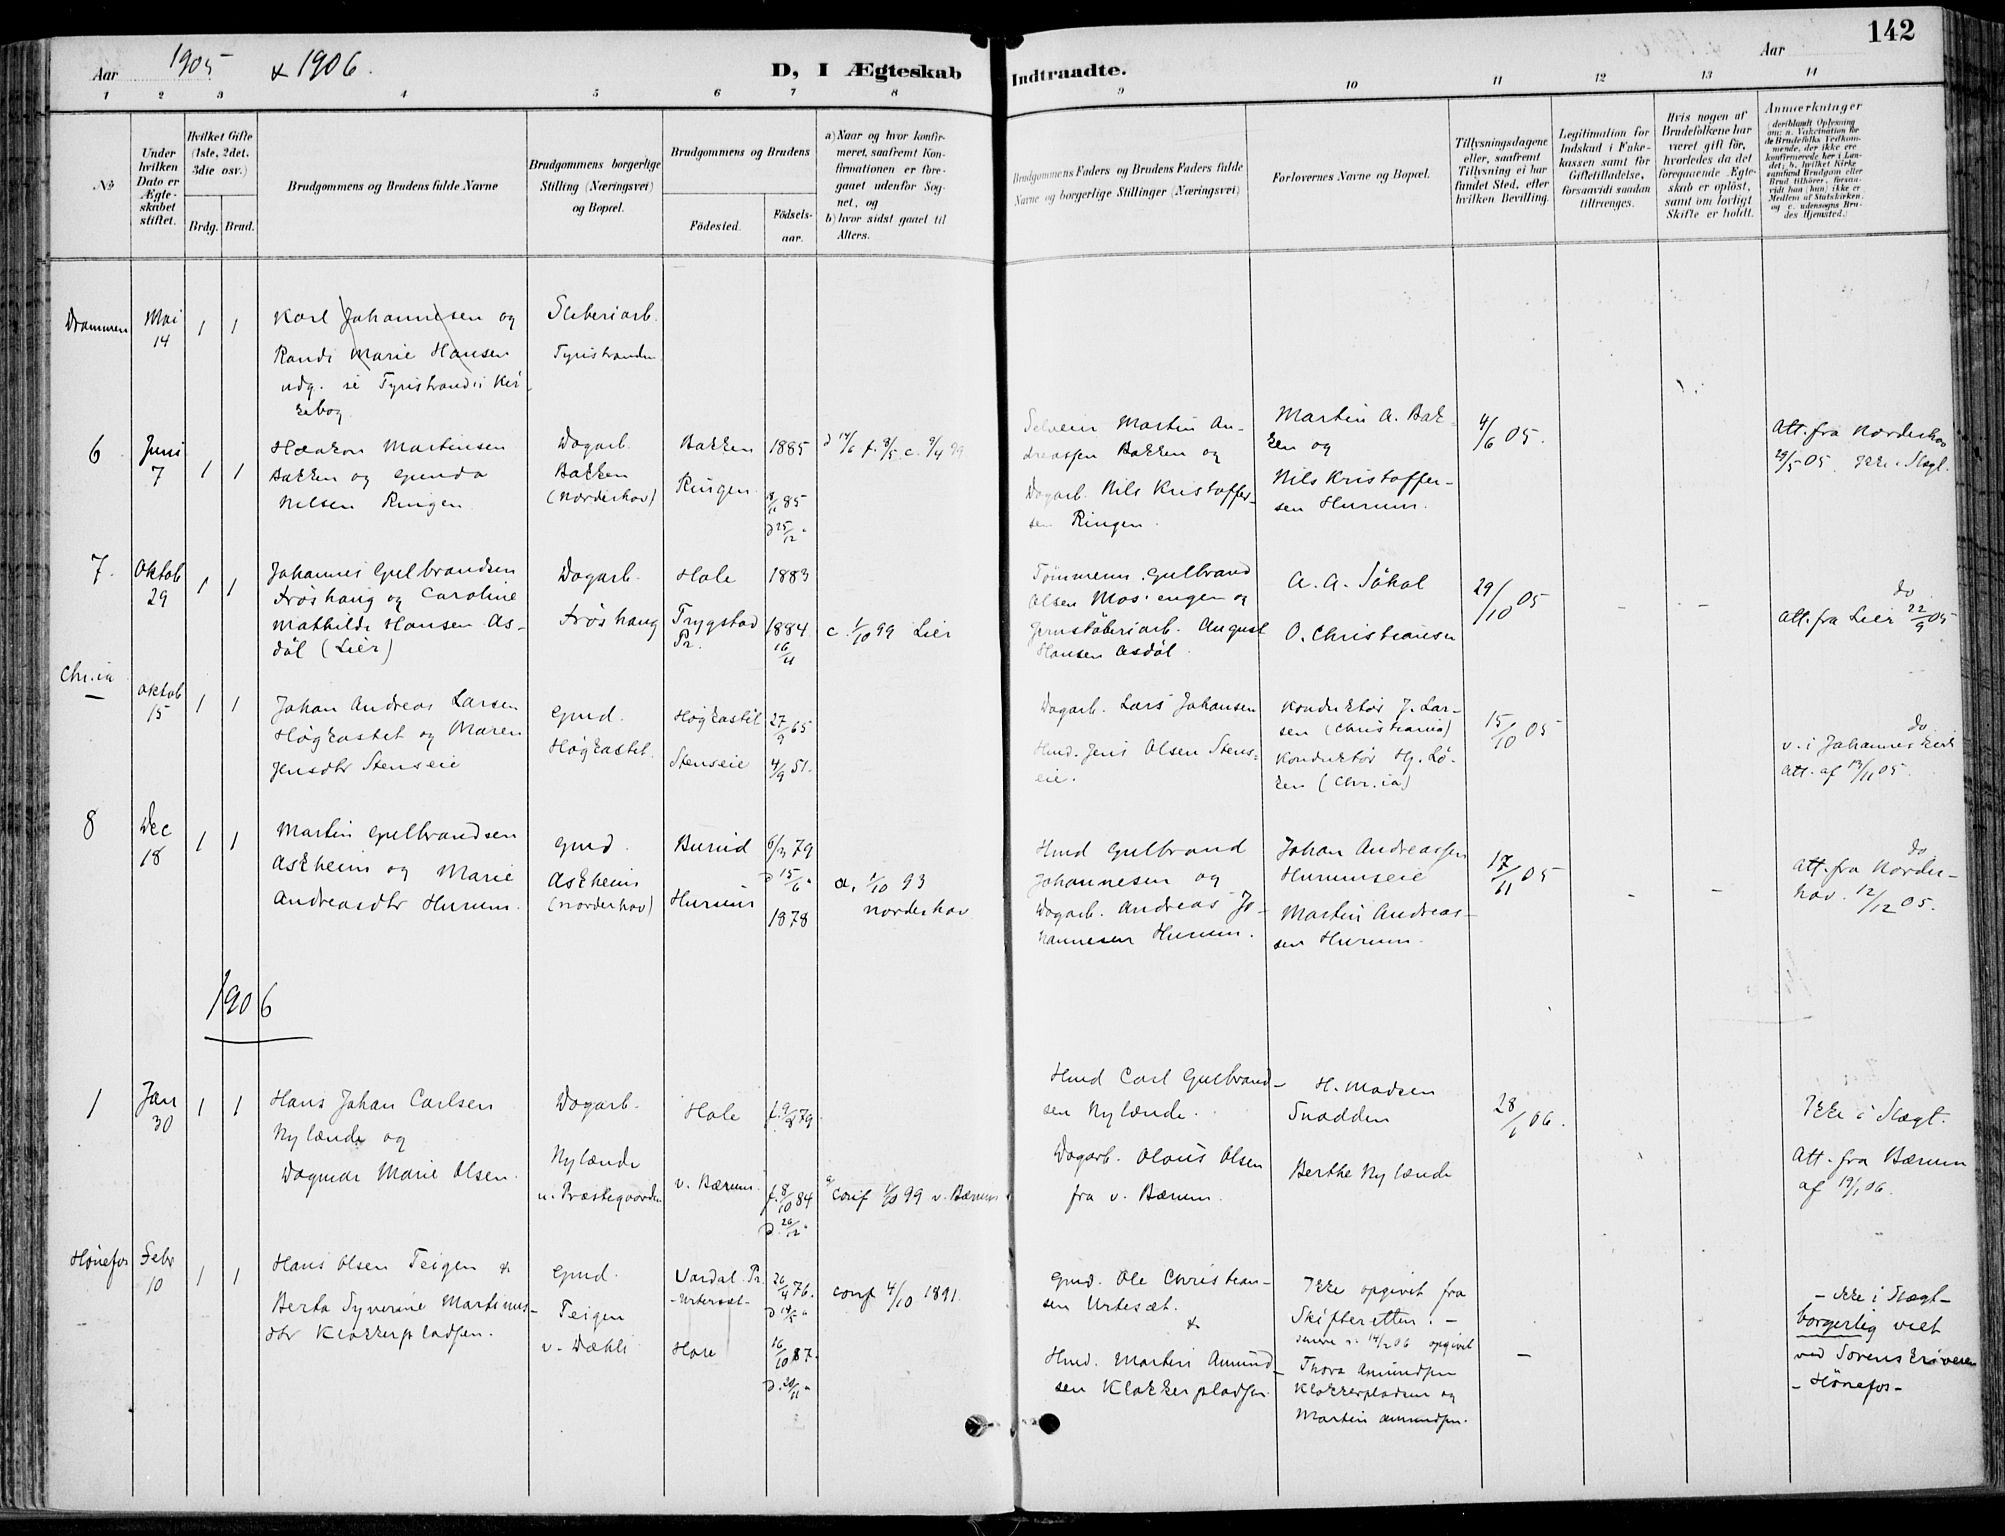 Aar 1905 & 1906.
D, I Ægteskab
Indtraadte.
Aar
142
1 2 3 4 5 6 7 8 9 10 11 12 13 14
No
Under hvilken Dato er Ægteskabet stiftet.
Hvilket Gifte (1ste, 2det, 3die osv.)
Brdg. Brud.
Brudgommens og Brudens fulde Navne
Brudgommens borgerlige Stilling (Næringsvei) og Bopæl.
Brudgommens og Brudens
Fødested.
Fødselsaar.
a) Naar og hvor konfirmeret, saafremt Konfirmationen er foregaaet udenfor Sognet, og
b) hvor sidst gaaet til Alters.
Brudgommens Faders og Brudens Faders fulde Navne og borgerlige Stillinger (Næringsvei)
Forlovernes Navne og Bopæl.
Tillysningsdagene eller, saafremt Tillysning ei har fundet Sted, efter hvilken Bevilling.
Legitimation for Indskud i Enkekassen samt for Giftetilladelse, forsaavidt saadan tiltrænges.
Hvis nogen af Brudefolkene har været gift før, hvorledes da det foregaaende Ægteskab er opløst, samt om lovligt Skifte er holdt.
Anmærkninger
(deriblandt Oplysning om: a. Vakcination for de Brudefolks Vedkommende, der ikke ere konfirmerede her i Landet; b. hvilket Kirkesamfund Brudgom eller Brud tilhører, forsaavidt han (hun) ikke er Medlem af Statskirken, og c. udensogns Brudes Hjemsted.)
Drammen
Mai 14
1 1
Karl Johannesen og
Randi Marie Hansen
udg. se Tyristrands Kir-
kebog.
Sliberiarb.
Tyristranden
6
Juni 7
1 1
Haakon Martinsen
Bakken og Gunda
Nilsen Ringen
Dagarb.
Bakken
(Norderhov)
Bakken
Ringen
1885
8/11 85
d 25/12
d 14/6 f. 8/5 c. 9/4 99
Selveier Martin An-
dreassen Bakken og
Dagarb. Nils Kristoffer-
sen Ringen.
Martin A. Bak-
ken og
Nils Kristoffer-
sen Hurum.
4/6 05.
Att. fra Norderhov
29/5 05. Ikke i Slægt.
7.
Oktob 29
1 1
Johannes Gulbrandsen
Frøshaug og Caroline
Mathilde Hansen As-
døl (Lier)
Dagarb.
Frøshaug
Hole
Trygstad
Pr.
1883
1884
16/11
c. 1/10 99 Lier
Tømmerm. Gulbrand
Olsen Mosengen og
Jernstøberiarb. August
Hansen Asdøl.
A. A. Jökol
O. Christiansen
29/10 05
- -
do
Att. fra Lier 22/9 05
Chr.ia
-
Oktob 15
1 1
Johan Andreas Larsen
Høgkastet og Maren
Jensdtr Stenseie
Gmd.
Høgkastet.
Høgkastet
Stenseie
27/9 65
4/9 51.
Dagarb. Lars Johansen
Hmd. Jens Olsen Stens-
eie.
Konduktør J. Lar-
sen (Christiania)
Konduktør Hj. Lö-
ken (Chr.ia)
15/10 05
do
v. i Johannes Kirk
Att. af 13/11 05.
8
Dec 18
1 1
Martin Gulbrandsen
Askheim og Marie
Andreasdtr Hurum.
Gmd.
Askheim
(Norderhov)
Burud
Hurum
6/3 79
d 15/6
1878
a. 1/10 93
Norderhov
Hmd Gulbrand
Johannesen og
Dagarb. Andreas Jo-
hannesen Hurum.
Johan Andreassen
Hurumseie
Martin Andreas-
sen Hurum.
17/11 05
- -
do
Att. fra Norder-
hov. 12/12 05.
1906
1
Jan 30
1 1
Hans Johan Carlsen
Nylænde og
Dagmar Marie Olsen.
Dagarb.
Nylænde
u. Præstegaarden
Hole
v. Bærum.
f. 9/8 79
f. 8/10 84
d. 26/12
conf 1/10 99 v. Bærum
Hmd Carl Gulbrand-
sen Nylænde.
Dagarb. Olaus Olsen
fra v. Bærum.
H. Madsen
Snadden
Berthe Nylænde
28/1 06.
Ikke i Slægt.
Att. fra Bærum
af 19/1 06.
Hønefos
Febr 10
1 1
Hans Olsen Teigen &
Berta Syverine Martinus-
dtr Klokkerpladsen.
Gmd.
Teigen
v. Dæhli
Vardal Pr.
-Urtesæt-
Hole
26/4 76.
d 14/5
16/10 87.
d. 20/11
conf 4/10 1891.
Gmd. Ole Christian-
sen Urtesæt.
&
Hmd. Martin Amund-
sen Klokkerpladsen
Ikke opgivet fra
Skifteretten. -
senere n. 14/2 06 opgivet
Thora Amundsen
Klokkerpladsen og
Martin Amundsen.
-
- ikke i Slægt -
borgerlig viet
ved Sorenskriveren
- Hønefos -